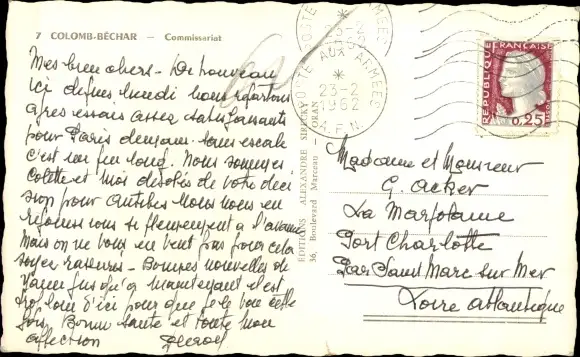 7 COLOMB-BÉCHAR — Commissariat
Mes bien chers - De nouveau
ici depuis lundi nous repartons
après essais assez satisfaisants
pour Paris demain. sans escale
c'est un peu long. Nous sommes
Colette et moi désolés de votre déci
sion pour Antibes Nous nous en
réjouissons si
Mais on ne vous en veut pas pour cela
soyez rassurés - Bonnes nouvelles de
jusqu'à maintenant il est
trop loin d'ici pour que je le vois cette
fois. Bonne santé et toute mon
affection
ÉDITIONS ALEXANDRE SIRECKY
36, Boulevard Marceau - ORAN
POSTE AUX ARMÉES
*
23-2
1962
A.F.N.
RÉPUBLIQUE FRANÇAISE
0,25
Madame et Monsieur
G. Acker
La Marjolaine
Port Charlotte
Par Saint Marc sur Mer
Loire Atlantique